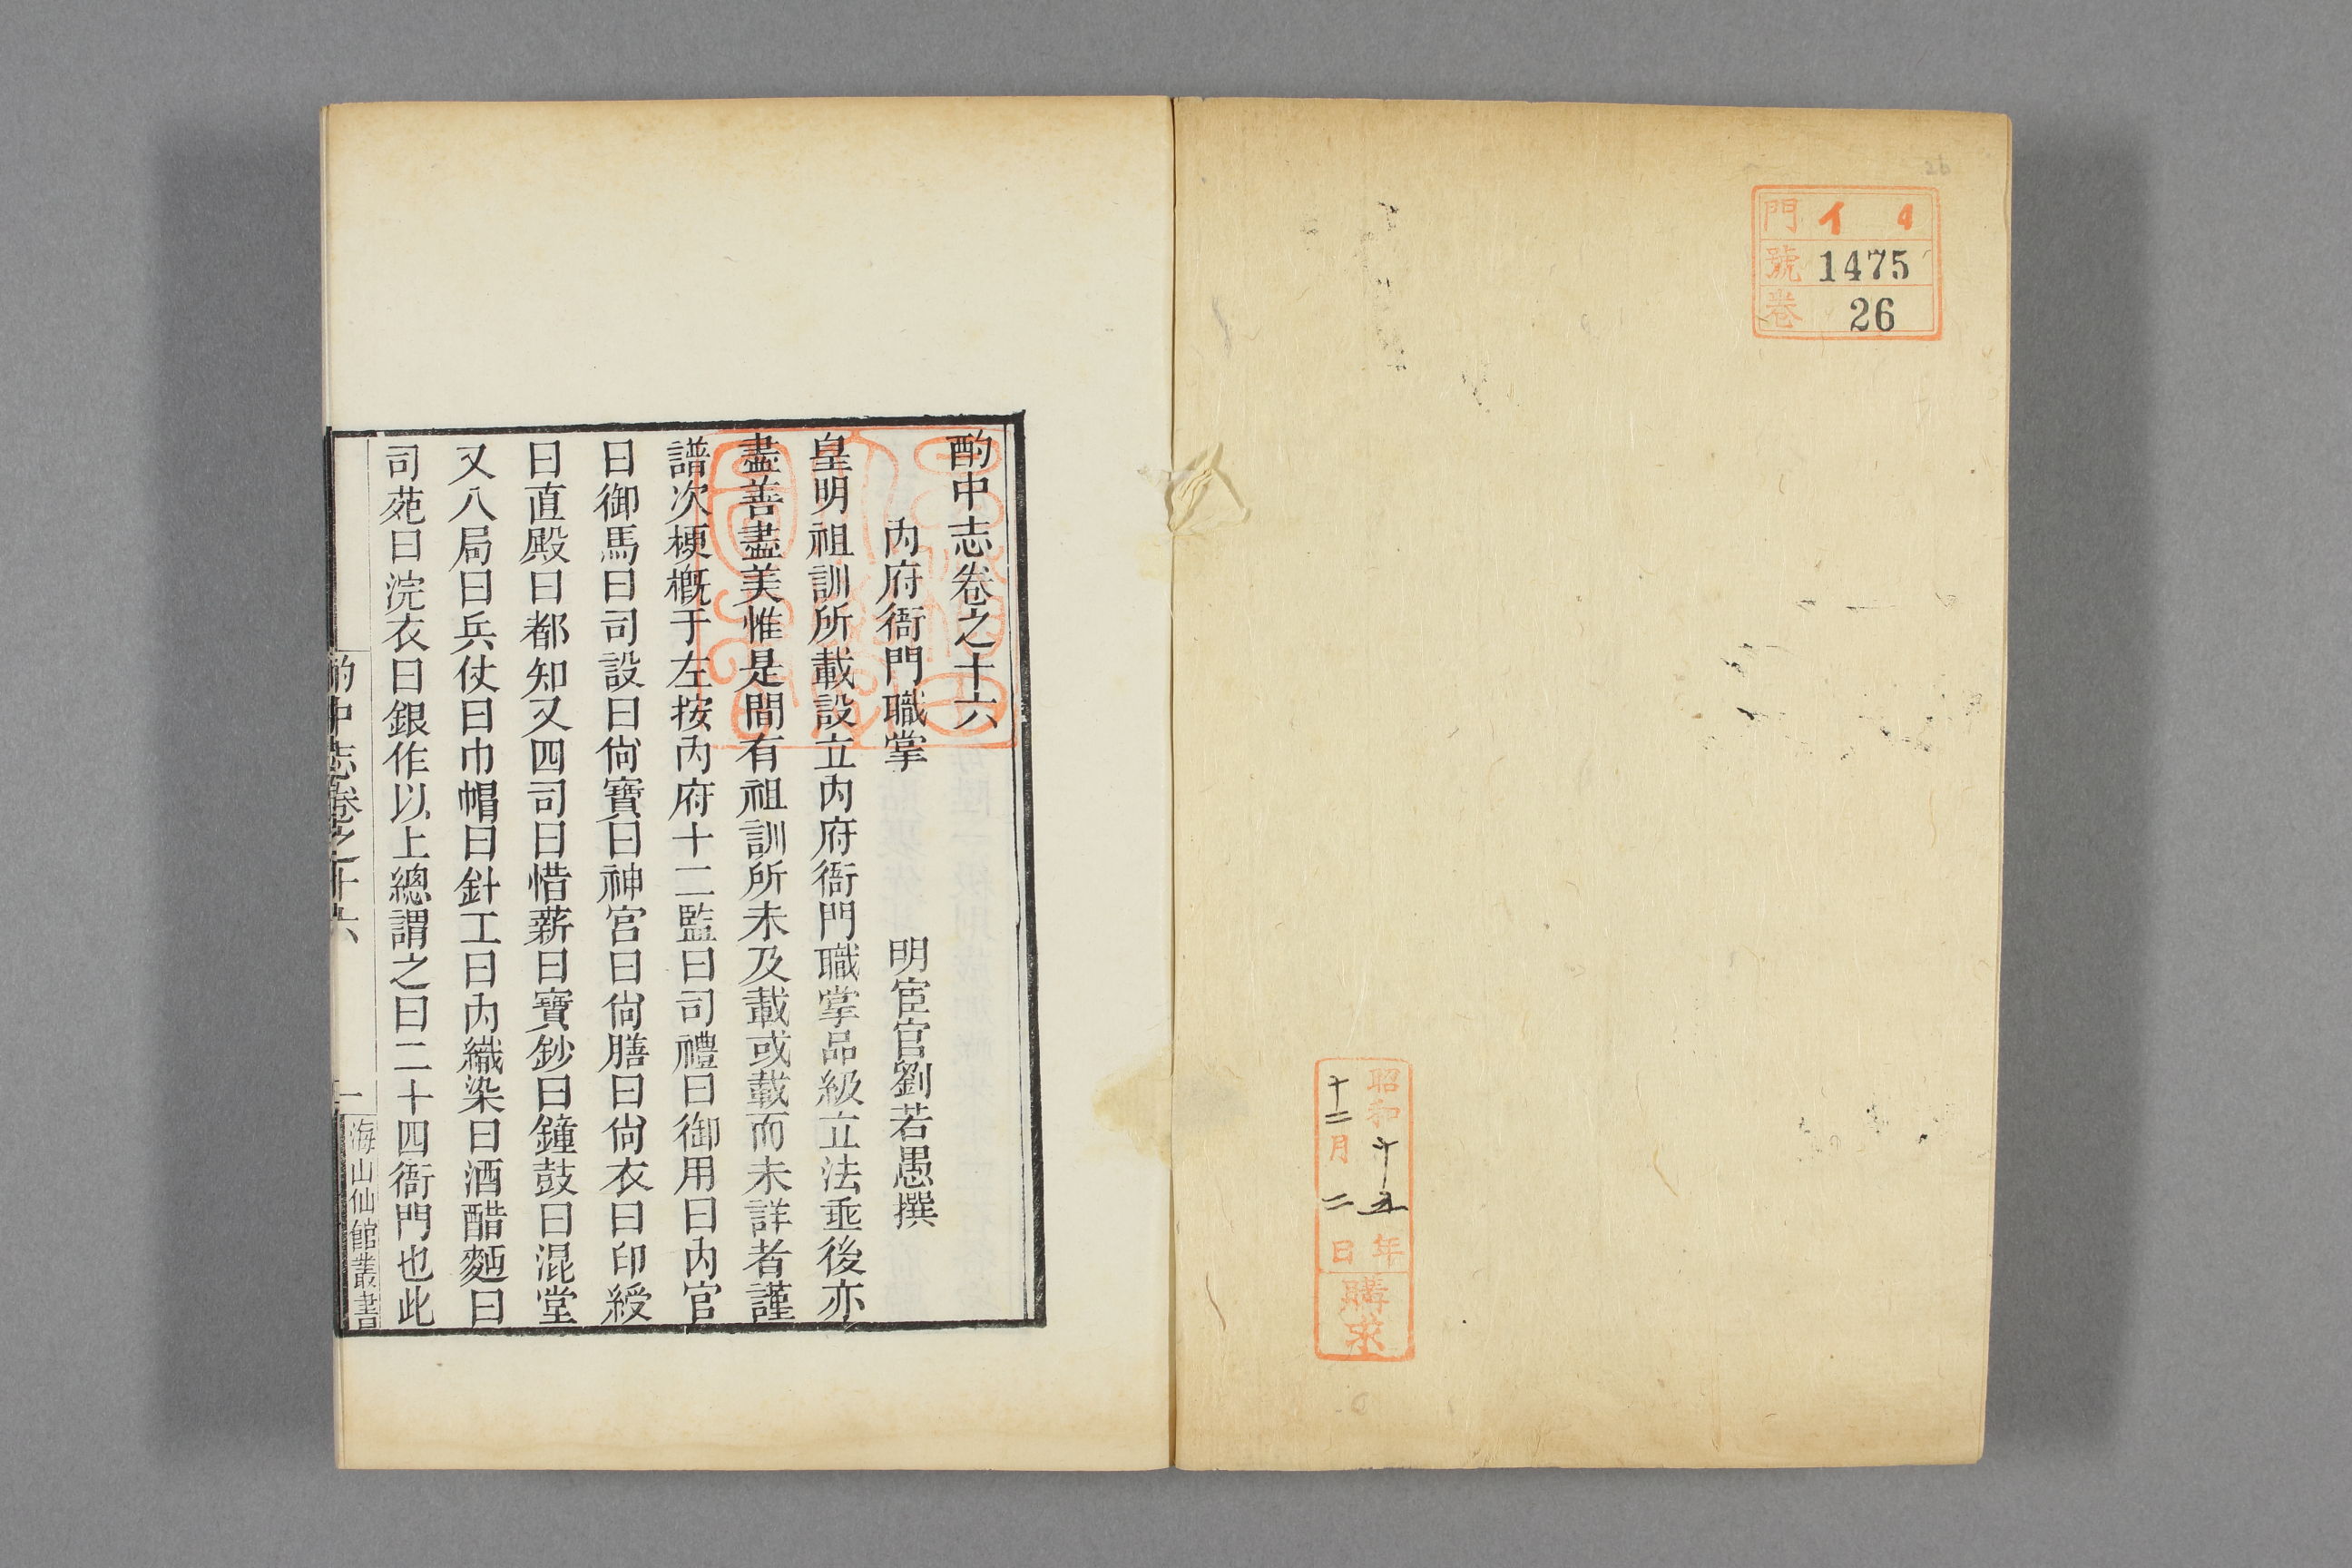 26
門 イ 4
號 1475
卷 26
昭和十五年
十二月二日
購求
酌中志卷之十六
內府衙門職掌 明宦官劉若愚撰
皇明祖訓所載設立內府衙門職掌品級立法垂後亦
盡善盡美惟是間有祖訓所未及載或載而未詳者謹
譜次梗槪于左按內府十二監曰司禮曰御用曰內官
曰御馬曰司設曰尙寶曰神宮曰尙膳曰尙衣曰印綬
曰直殿曰都知又四司曰惜薪曰寶鈔曰鐘鼓曰混堂
又八局曰兵仗曰巾帽曰針工曰內織染曰酒醋麪曰
司苑曰浣衣曰銀作以上總謂之曰二十四衙門也此
酌中志卷之十六 一 海山仙館叢書